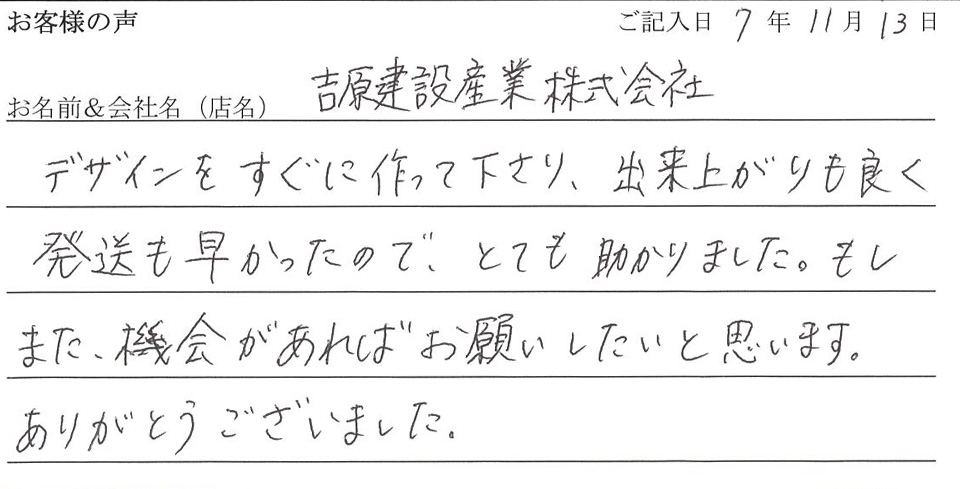 お客様の声 ご記入日 7年11月13日
お名前&会社名（店名） 吉原建設産業株式会社
デザインをすぐに作って下さり、出来上がりも良く
発送も早かったので、とても助かりました。もし
また、機会があればお願いしたいと思います。
ありがとうございました。